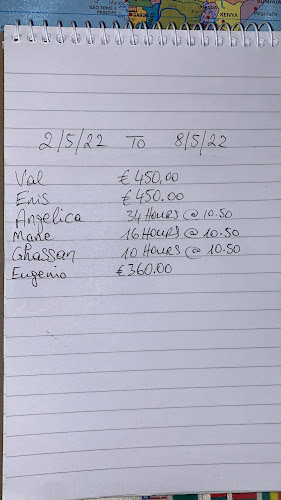 SÃO TOMÉ &
PRÍNCIPE
KENYA
SOMALIA
2/5/22 TO 8/5/22
Val €450,00
Enis €450.00
Angelica 34 HOURS @ 10.50
Mane 16 HOURS @ 10.50
Ghassan 10 HOURS @ 10.50
Eugenio €360.00